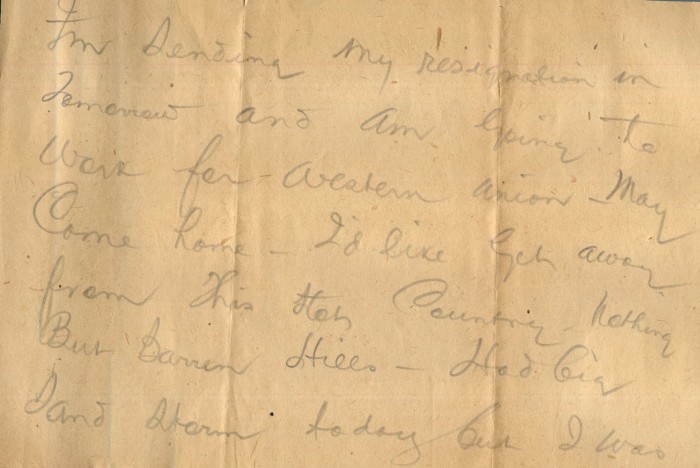 I'm Sending my resignation in
Tomorrow and am going to
Work for - Western Union - May
Come home - I'd like get away
from This Hot Country - Nothing
But Barren Hills - Had big
Sand Storm today but I was